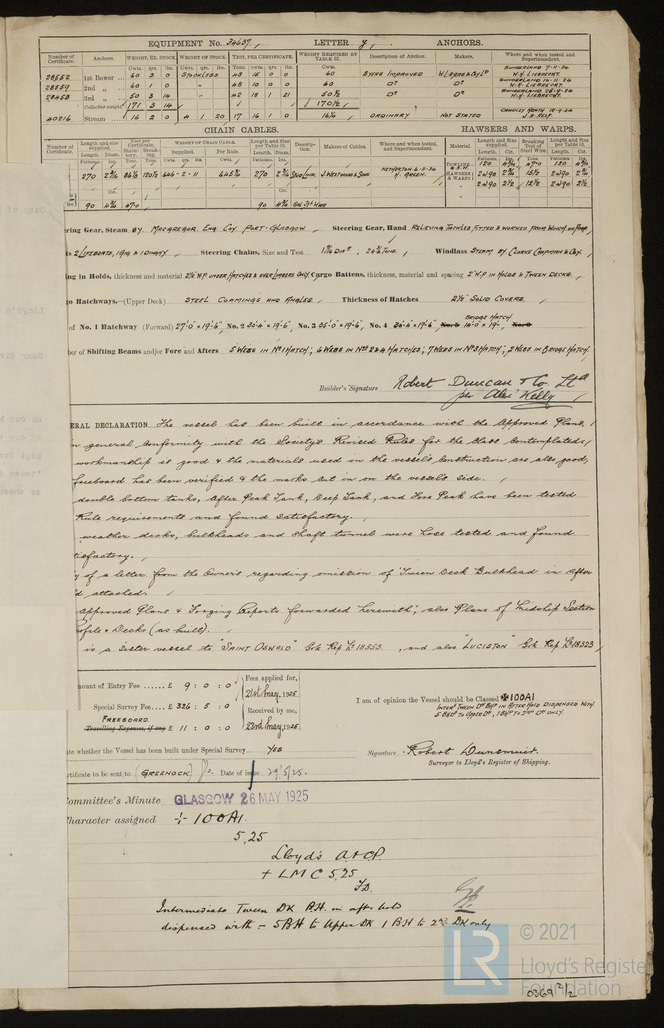 EQUIPMENT No. 34637, LETTER y, ANCHORS.
Number of Certificate. Anchors. WEIGHT, EX. STOCK. WEIGHT OF STOCK. TEST, PER CERTIFICATE. WEIGHT REQUIRED BY TABLE 31. Description of Anchor. Makers. Where and when tested and Superintendent.
Cwts. qrs. lbs. Cwts. qrs. lbs. Tons. cwts. qrs. lbs. Cwts.
28552 1st Bower 60 3 0 STOCKLESS 48 15 0 0 60 BYERS IMPROVED SUNDERLAND 7-11-24 W.F. LIEBRECHT.
28559 2nd „ 60 1 0 " 48 10 0 0 60 Do Do SUNDERLAND W.F. LIEBRECHT.
28453 3rd „ 50 3 14 " 42 18 1 21 50½ Do Do SUNDERLAND W.F. LIEBRECHT.
Collective weight 171 3 14 170½
40216 Stream 16 2 0 4 1 20 17 16 1 0 16¼ ORDINARY NOT STATED CRADLEY HEATH
CHAIN CABLES. HAWSERS AND WARPS.
Number of Certificate. Length and size supplied. Test per Certificate. WEIGHT OF CHAIN CABLE. Length and Size per Table 31. Description. Makers of Cables. Where and when tested, and Superintendent. Material. Length and Size supplied. Breaking Test of Steel Wire. Length and Size per Table 31.
270 645¾ 270 Stud Link J. WESTWOOD & SONS NETHERTON H. GREEN.
90 90
ring Gear, Steam BY MACGREGOR ENG COY PORT-GLASGOW Steering Gear, Hand RELIEVING TACKLES, FITTED & WORKED FROM WINCH ON POOP
ts 2 LIFEBOATS, 1 GIG & 1 DINGHY. Steering Chains, Size and Test Windlass STEAM BY CLARKE CHAPMAN & COY.
ng in Holds, thickness and material 2½" W.P. UNDER HATCHES & OVER LIMBERS ONLY. Cargo Battens, thickness, material and spacing 2" W.P. IN HOLDS & TWEEN DECKS.
o Hatchways.—(Upper Deck) STEEL COAMINGS AND ANGLES. Thickness of Hatches 2½" SOLID COVERS.
BRIDGE HATCH
of No. 1 Hatchway (Forward) 27'-0" x 19'-6", No. 2 x 19'-6", No. 3 x 19'-6", No. 4 x 19'-6", x 19'
ber of Shifting Beams and/or Fore and Afters 5 WEBS IN No 1 HATCH; 6 WEBS IN Nos 2 & 4 HATCHES; 7 WEBS IN No 3 HATCH; 2 WEBS IN BRIDGE HATCH.
Builder's Signature Robert Duncan & Co Ltd
per Alex Kelly
ERAL DECLARATION The vessel has been built in accordance with the Approved Plans,
n general conformity with the Society's Revised Rules for the Class Contemplated,
workmanship is good & the materials used in the vessel's construction are also good,
freeboard has been verified & the marks cut in on the vessel's side.
double bottom tanks, After Peak Tank, Deep Tank, and Fore Peak have been tested
Rule requirements and found satisfactory.
weather decks, bulkheads and shaft tunnel were hose tested and found
tisfactory.
y of a letter from the Owners regarding omission of Tween Deck Bulkhead in After
d attached.
Approved Plans & Forging Reports forwarded herewith; also Plans of Midship Section
ofile & Decks (as built).
is a sister vessel to "SAINT OSWALD" Grk Rep No 18353, and also "LUCISTON" Grk Rep No 18323
mount of Entry Fee ...... £ 9 : 0 : 0 Fees applied for,
21st May, 1925
Special Survey Fee .... £ 326 : 5 : 0 Received by me,
FREEBOARD.
Travelling Expenses, if any £ 11 : 0 : 0 23rd May, 1925
I am of opinion the Vessel should be Classed ✠100A1
INTER TWEEN DK BHD IN AFTER HOLD DISPENSED WITH
5 BHDS TO UPPER DK, 1 BHD TO 2ND DK ONLY.
te whether the Vessel has been built under Special Survey Yes
Signature, Robert Dunsmuir.
Surveyor to Lloyd's Register of Shipping.
rtificate to be sent to (GREENOCK) Date of issue 29/5/25.
Committee's Minute GLASGOW 26 MAY 1925
Character assigned + 100A1
5,25
Lloyd's A & CP
+ LMC 5,25
FD.
Intermediate Tween DK B.H. in after hold
dispensed with - 5 BH to Upper DK 1 BH to 2nd DK only
© 2021
LR Lloyd's Register Foundation
0369 2/2